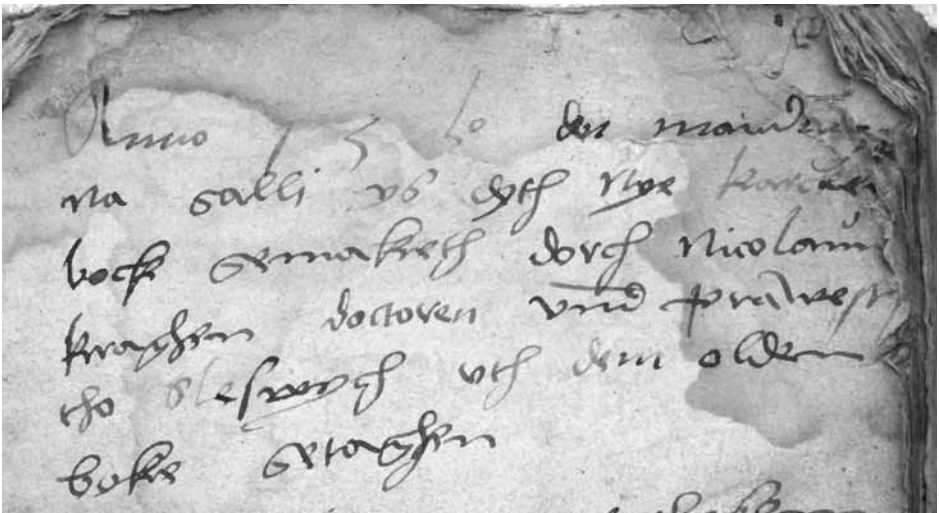 Anno 15 den mandag
na galli ys dyth nye karcken
bock gemaketh dorch Nicolaum
kraghen doctoren vnd prawest
tho sleswych vth dem olden
boke getaghen